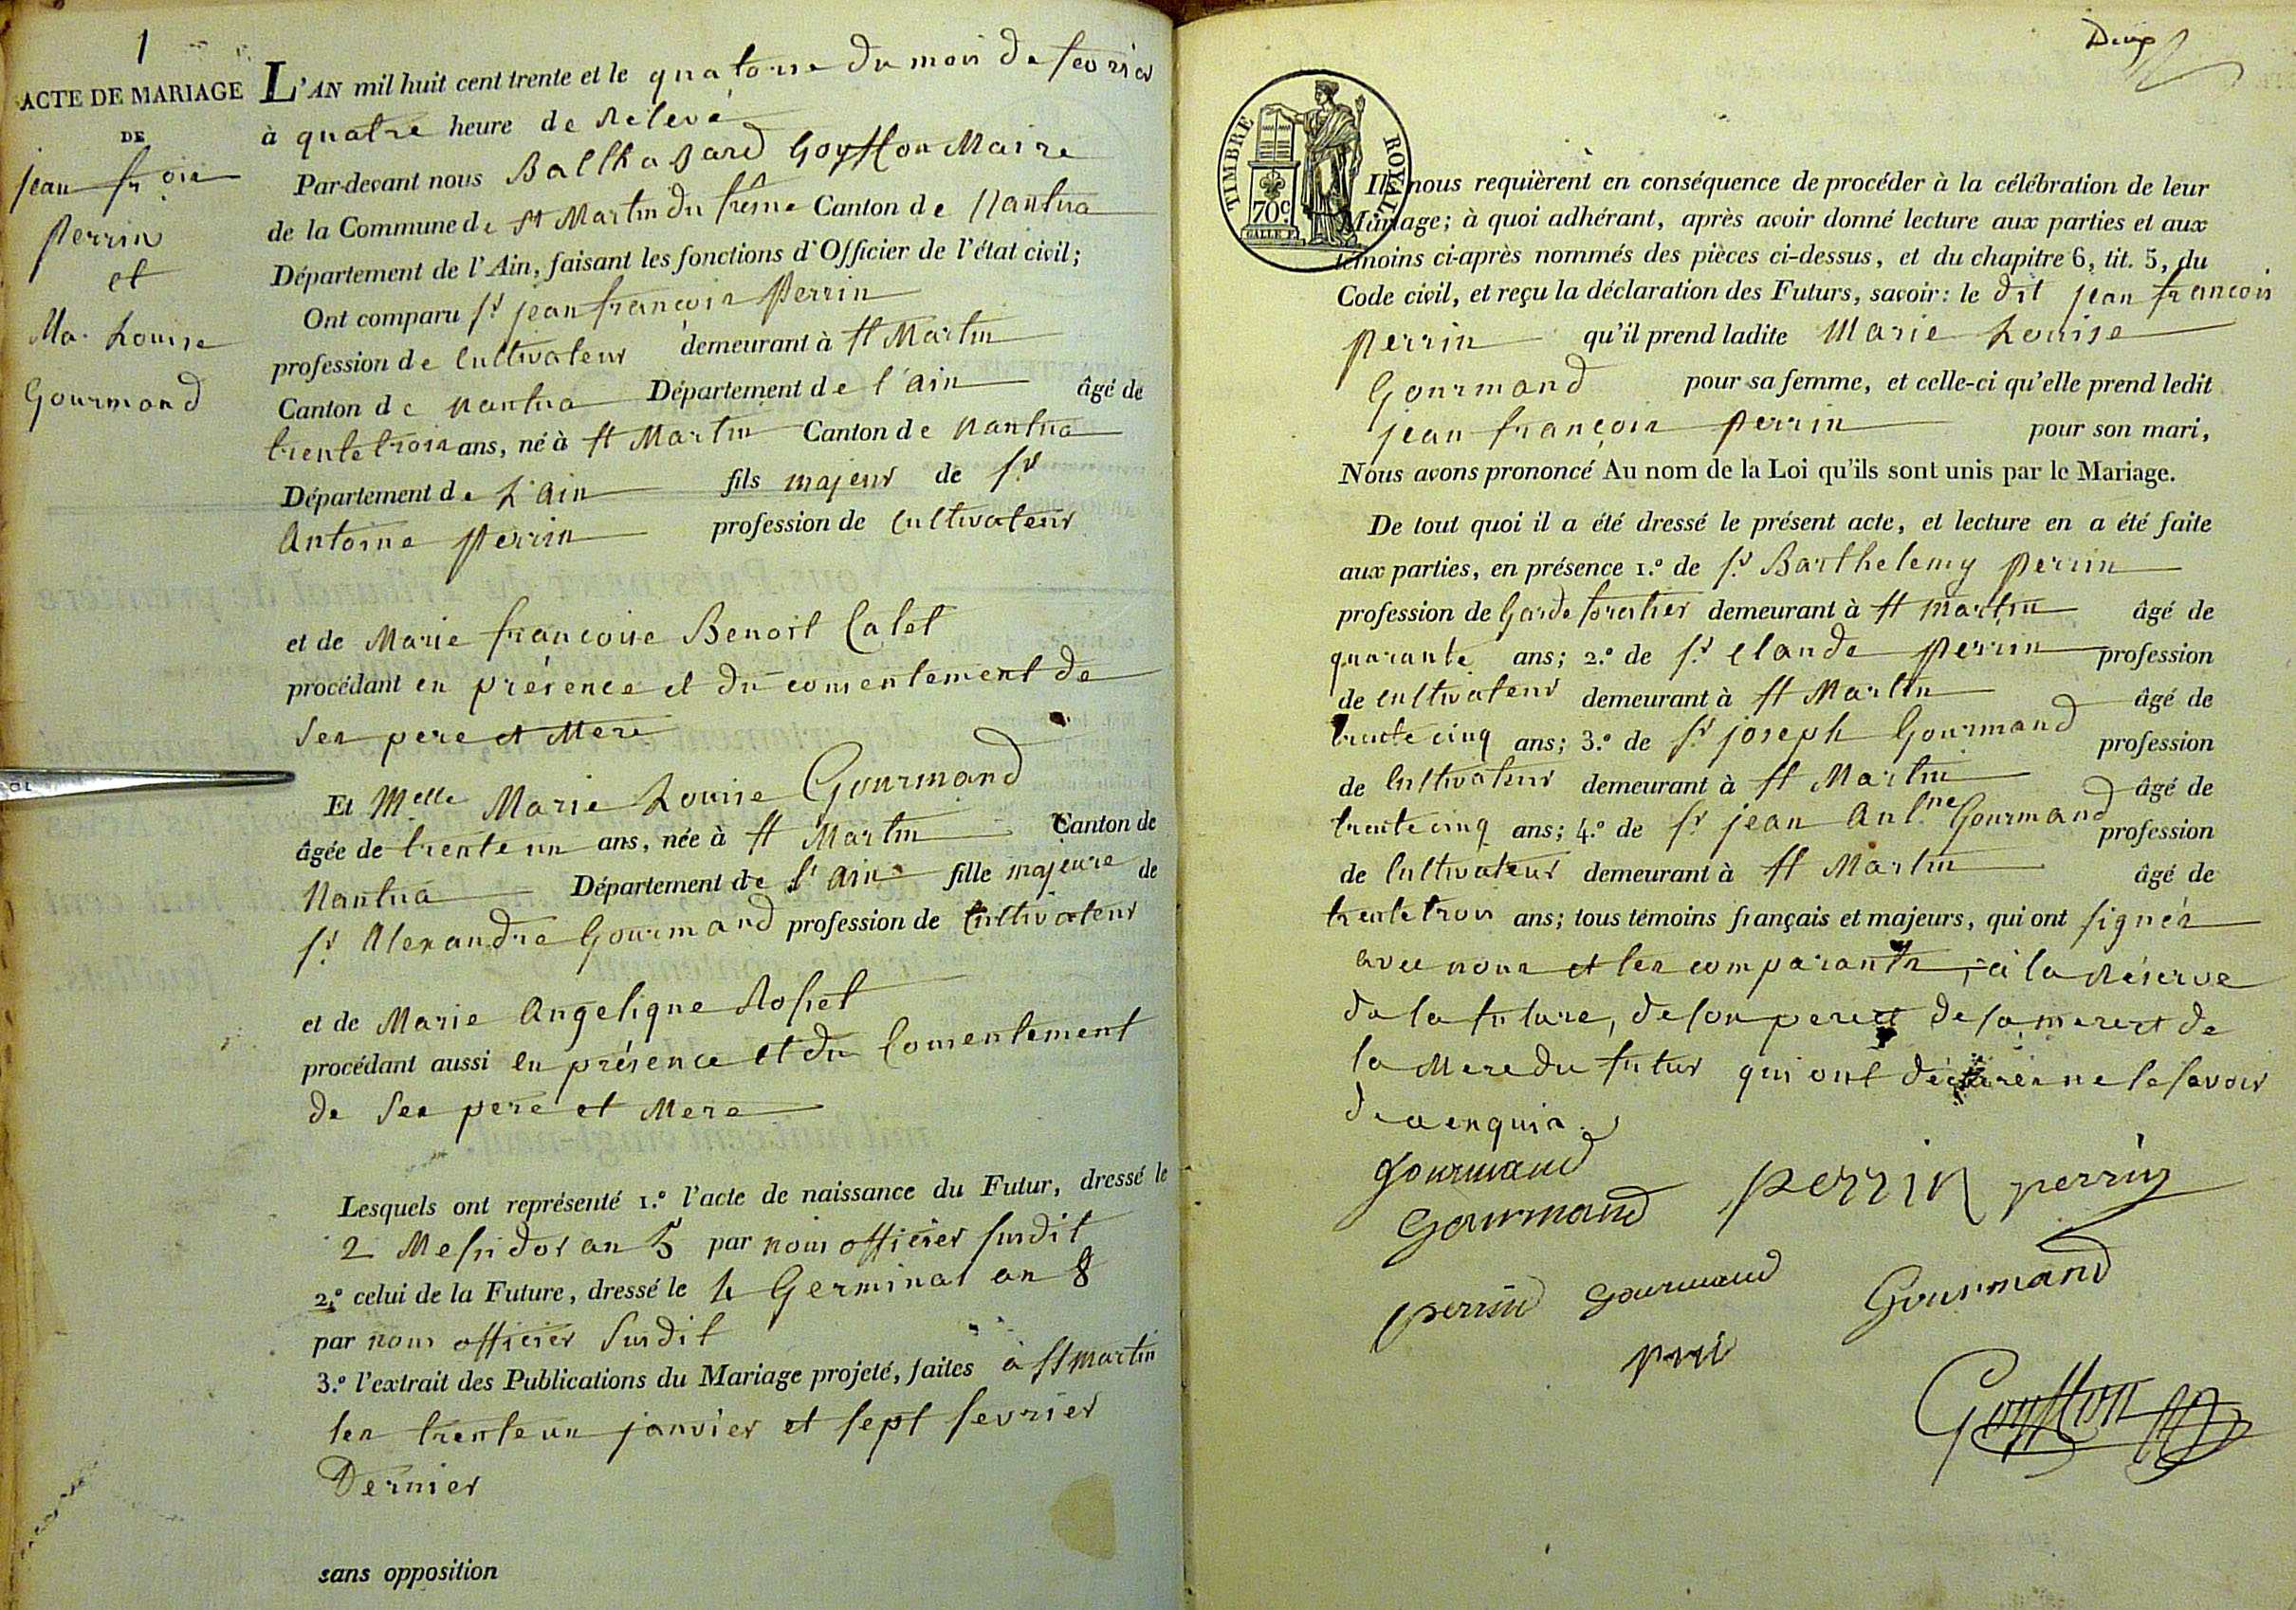 1
ACTE DE MARIAGE
DE
jean fr.ois
Perrin
et
Ma. Louise
Gourmand
L'AN mil huit cent trente et le quatorze du mois de fevrier
à quatre heure de Relevé
Par-devant nous Balthasard Goyffon Maire
de la Commune de St Martin du frêne Canton de Nantua
Département de l'Ain, faisant les fonctions d'Officier de l'état civil;
Ont comparu Sr jean françois Perrin
profession de Cultivateur demeurant à St Martin
Canton de Nantua Département de l'ain âgé de
trente trois ans, né à St Martin Canton de Nantua
Département de L'ain fils majeur de Sr
Antoine Perrin profession de Cultivateur
et de Marie françoise Benoit Catet
procédant en présence et du consentement de
Ses pere et Mere
Et Melle Marie Louise Gourmand
âgée de trente un ans, née à St Martin Canton de
Nantua Département de l'ain fille majeure de
Sr Alexandre Gourmand profession de Cultivateur
et de Marie Angelique Rosset
procédant aussi en présence et du Consentement
de Ses pere et Mere
Lesquels ont représenté 1.º l'acte de naissance du Futur, dressé le
2 Messidor an 5 par nous officier susdit
2.º celui de la Future, dressé le 4 Germinal an 8
par nous officier Susdit
3.º l'extrait des Publications du Mariage projeté, faites à St martin
les trente un janvier et sept fevrier
Dernier
sans opposition
Deux
TIMBRE ROYAL
70c
GALLE F.
Ils nous requièrent en conséquence de procéder à la célébration de leur
Mariage; à quoi adhérant, après avoir donné lecture aux parties et aux
témoins ci-après nommés des pièces ci-dessus, et du chapitre 6, tit. 5, du
Code civil, et reçu la déclaration des Futurs, savoir: le dit jean francois
Perrin qu'il prend ladite Marie Louise
Gourmand pour sa femme, et celle-ci qu'elle prend ledit
jean françois perrin pour son mari,
Nous avons prononcé Au nom de la Loi qu'ils sont unis par le Mariage.
De tout quoi il a été dressé le présent acte, et lecture en a été faite
aux parties, en présence 1.º de Sr Barthelemy Perrin
profession de Garde foratier demeurant à St martin âgé de
quarante ans; 2.º de Sr Claude Perrin profession
de Cultivateur demeurant à St Martin âgé de
trente cinq ans; 3.º de Sr joseph Gourmand profession
de Cultivateur demeurant à St Martin âgé de
trente cinq ans; 4.º de Sr jean Ant.ne Gourmand profession
de Cultivateur demeurant à St Martin âgé de
trente trois ans; tous témoins français et majeurs, qui ont signés
avec nous et les comparants, à la Réserve
de la future, de son pere et de sa mere et de
la Mere du futur qui ont déclarés ne le savoir
de ce enquis.
gourmand
gourmand perrin perrin
perrin gourmand Gourmand
Goyffon